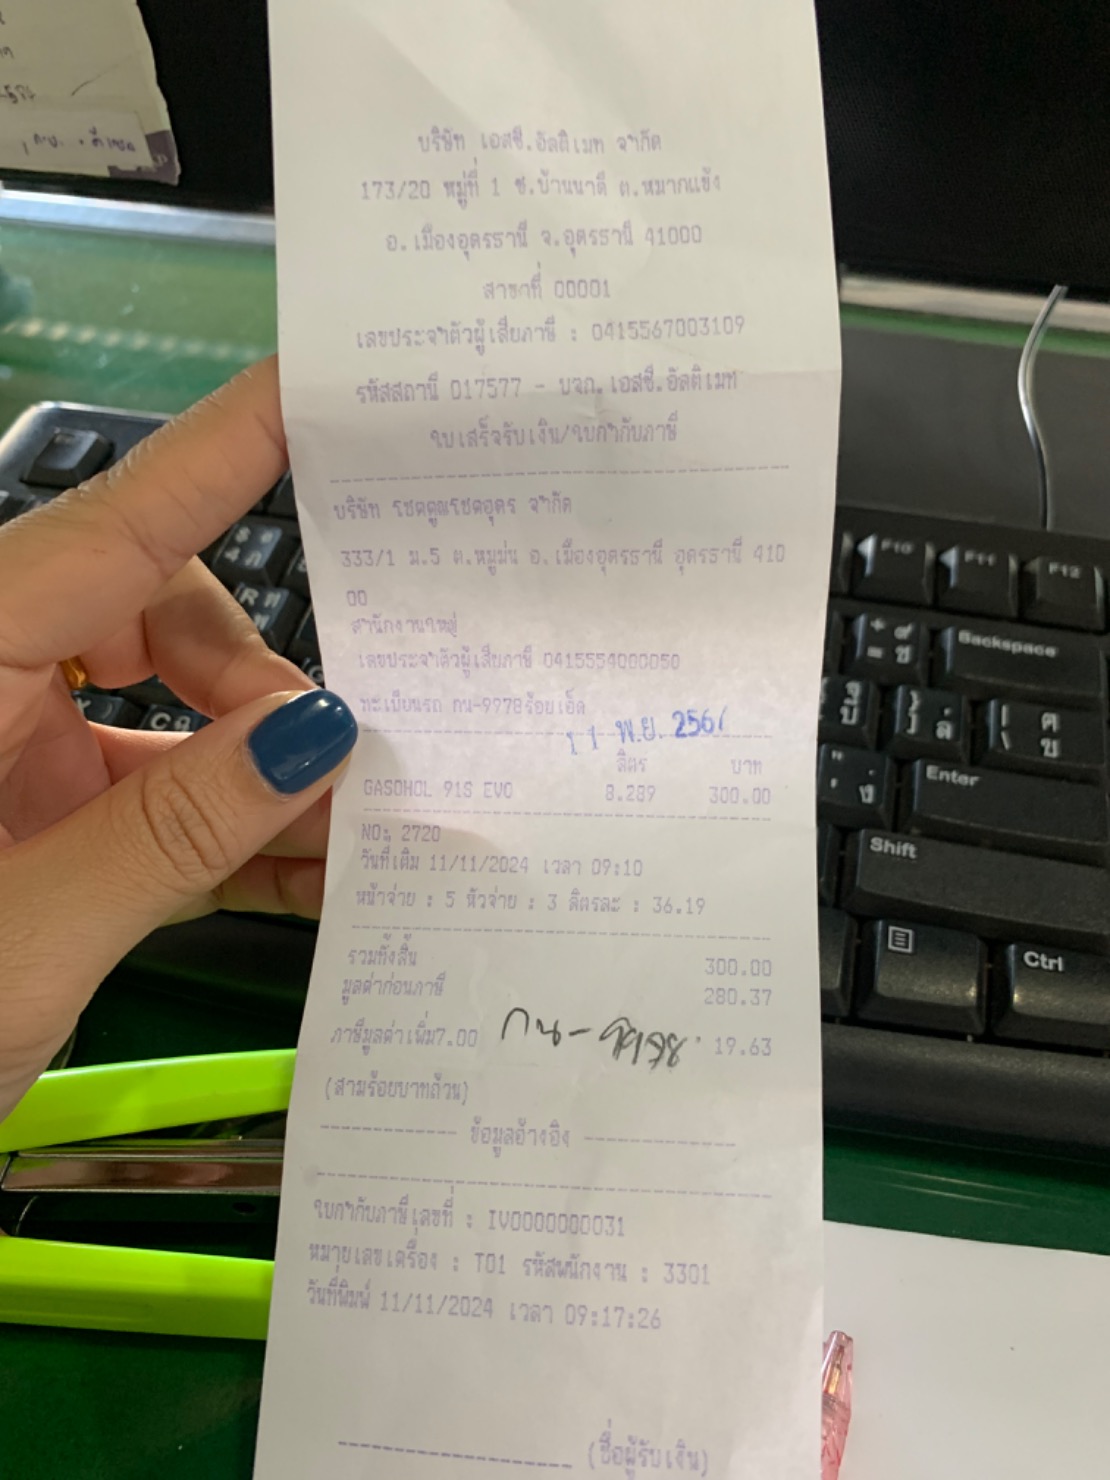 บริษัท เอสซี.อัลติเมท จำกัด
173/20 หมู่ที่ 1 ซ.บ้านนาดี ต.หมากแข้ง
อ.เมืองอุดรธานี จ.อุดรธานี 41000
สาขาที่ 00001
เลขประจำตัวผู้เสียภาษี : 0415567003109
รหัสสถานี 017577 - บจก.เอสซี.อัลติเมท
ใบเสร็จรับเงิน/ใบกำกับภาษี
บริษัท โชคคูณโชคอุดร จำกัด
333/1 ม.5 ต.หมูม่น อ.เมืองอุดรธานี อุดรธานี 410
00
สำนักงานใหญ่
เลขประจำตัวผู้เสียภาษี 0415554000050
ทะเบียนรถ กน-9978ร้อยเอ็ด
11 พ.ย. 2567
ลิตร บาท
GASOHOL 91S EVO 8.289 300.00
NO: 2720
วันที่เติม 11/11/2024 เวลา 09:10
หน้าจ่าย : 5 หัวจ่าย : 3 ลิตรละ : 36.19
รวมทั้งสิ้น 300.00
มูลค่าก่อนภาษี 280.37
ภาษีมูลค่าเพิ่ม7.00 19.63
กน-
(สามร้อยบาทถ้วน)
ข้อมูลอ้างอิง
ใบกำกับภาษีเลขที่ : IV0000000031
หมายเลขเครื่อง : T01 รหัสพนักงาน : 3301
วันที่พิมพ์ 11/11/2024 เวลา 09:17:26
(ชื่อผู้รับเงิน)
$
4 ภ
R
F10
F11
F12
Backspace
Enter
Shift
Ctrl